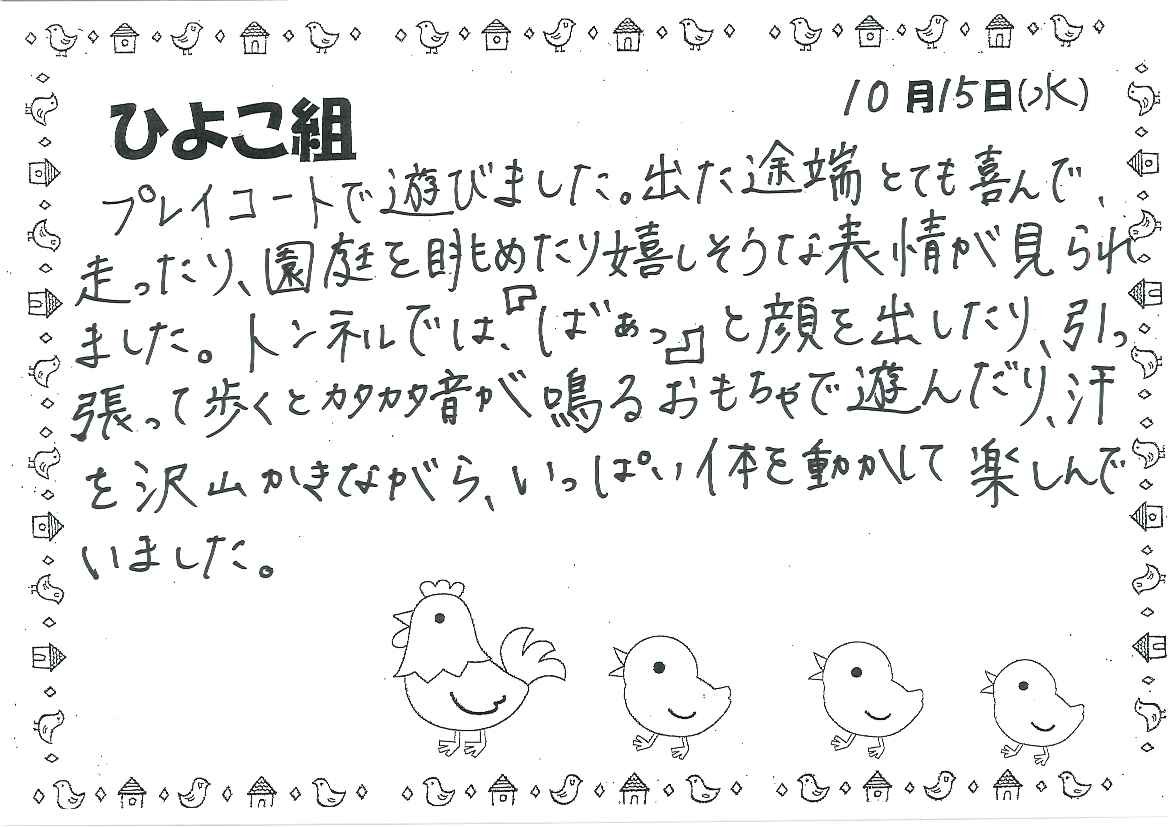 10月15日(水)
ひよこ組
プレイコートで遊びました。出た途端とても喜んで、
走ったり、園庭を眺めたり嬉しそうな表情が見られ
ました。トンネルでは、『ばぁっ』と顔を出したり、引っ
張って歩くとカタカタ音が鳴るおもちゃで遊んだり、汗
を沢山かきながら、いっぱい体を動かして楽しんで
いました。